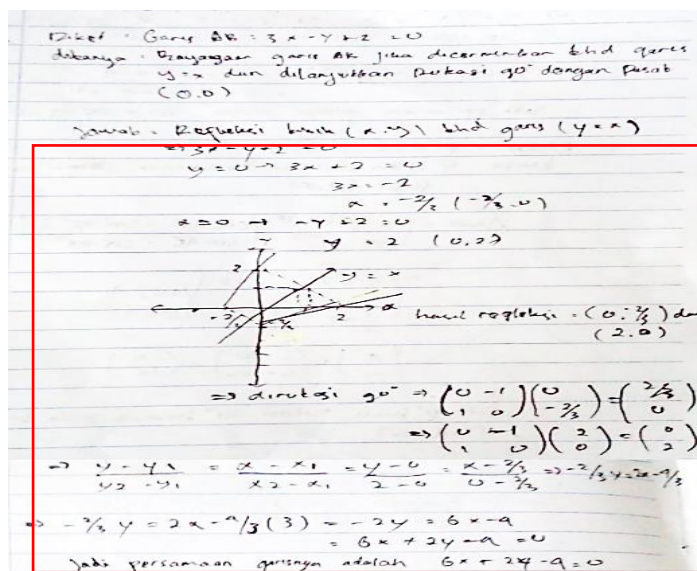 Diket : Garis AB = 3x - y + 2 = 0
ditanya : Bayangan garis AB jika dicerminkan thd garis
y = x dan dilanjutkan Rotasi 90° dengan Pusat
(0.0)
Jawab = Refleksi titik (x.y) thd garis (y = x)
=> 3x - y + 2 = 0
y = 0 → 3x + 2 = 0
3x = -2
x = -2/3 (-2/3.0)
x = 0 → -y + 2 = 0
y = 2 (0.2)
2
y = x
x
-2/3
2
hasil refleksi = (0.-2/3) dan
(2.0)
=> dirotasi 90° => (0 -1 / 1 0) (0 / -2/3) = (2/3 / 0)
=> (0 -1 / 1 0) (2 / 0) = (0 / 2)
=> y - y1 / y2 - y1 = x - x1 / x2 - x1 = y - 0 / 2 - 0 = x - 2/3 / 0 - 2/3 => -2/3 y = 2x - 4/3
=> -2/3 y = 2x - 4/3 (3) = -2y = 6x - 4
= 6x + 2y - 4 = 0
Jadi persamaan garisnya adalah 6x + 2y - 4 = 0